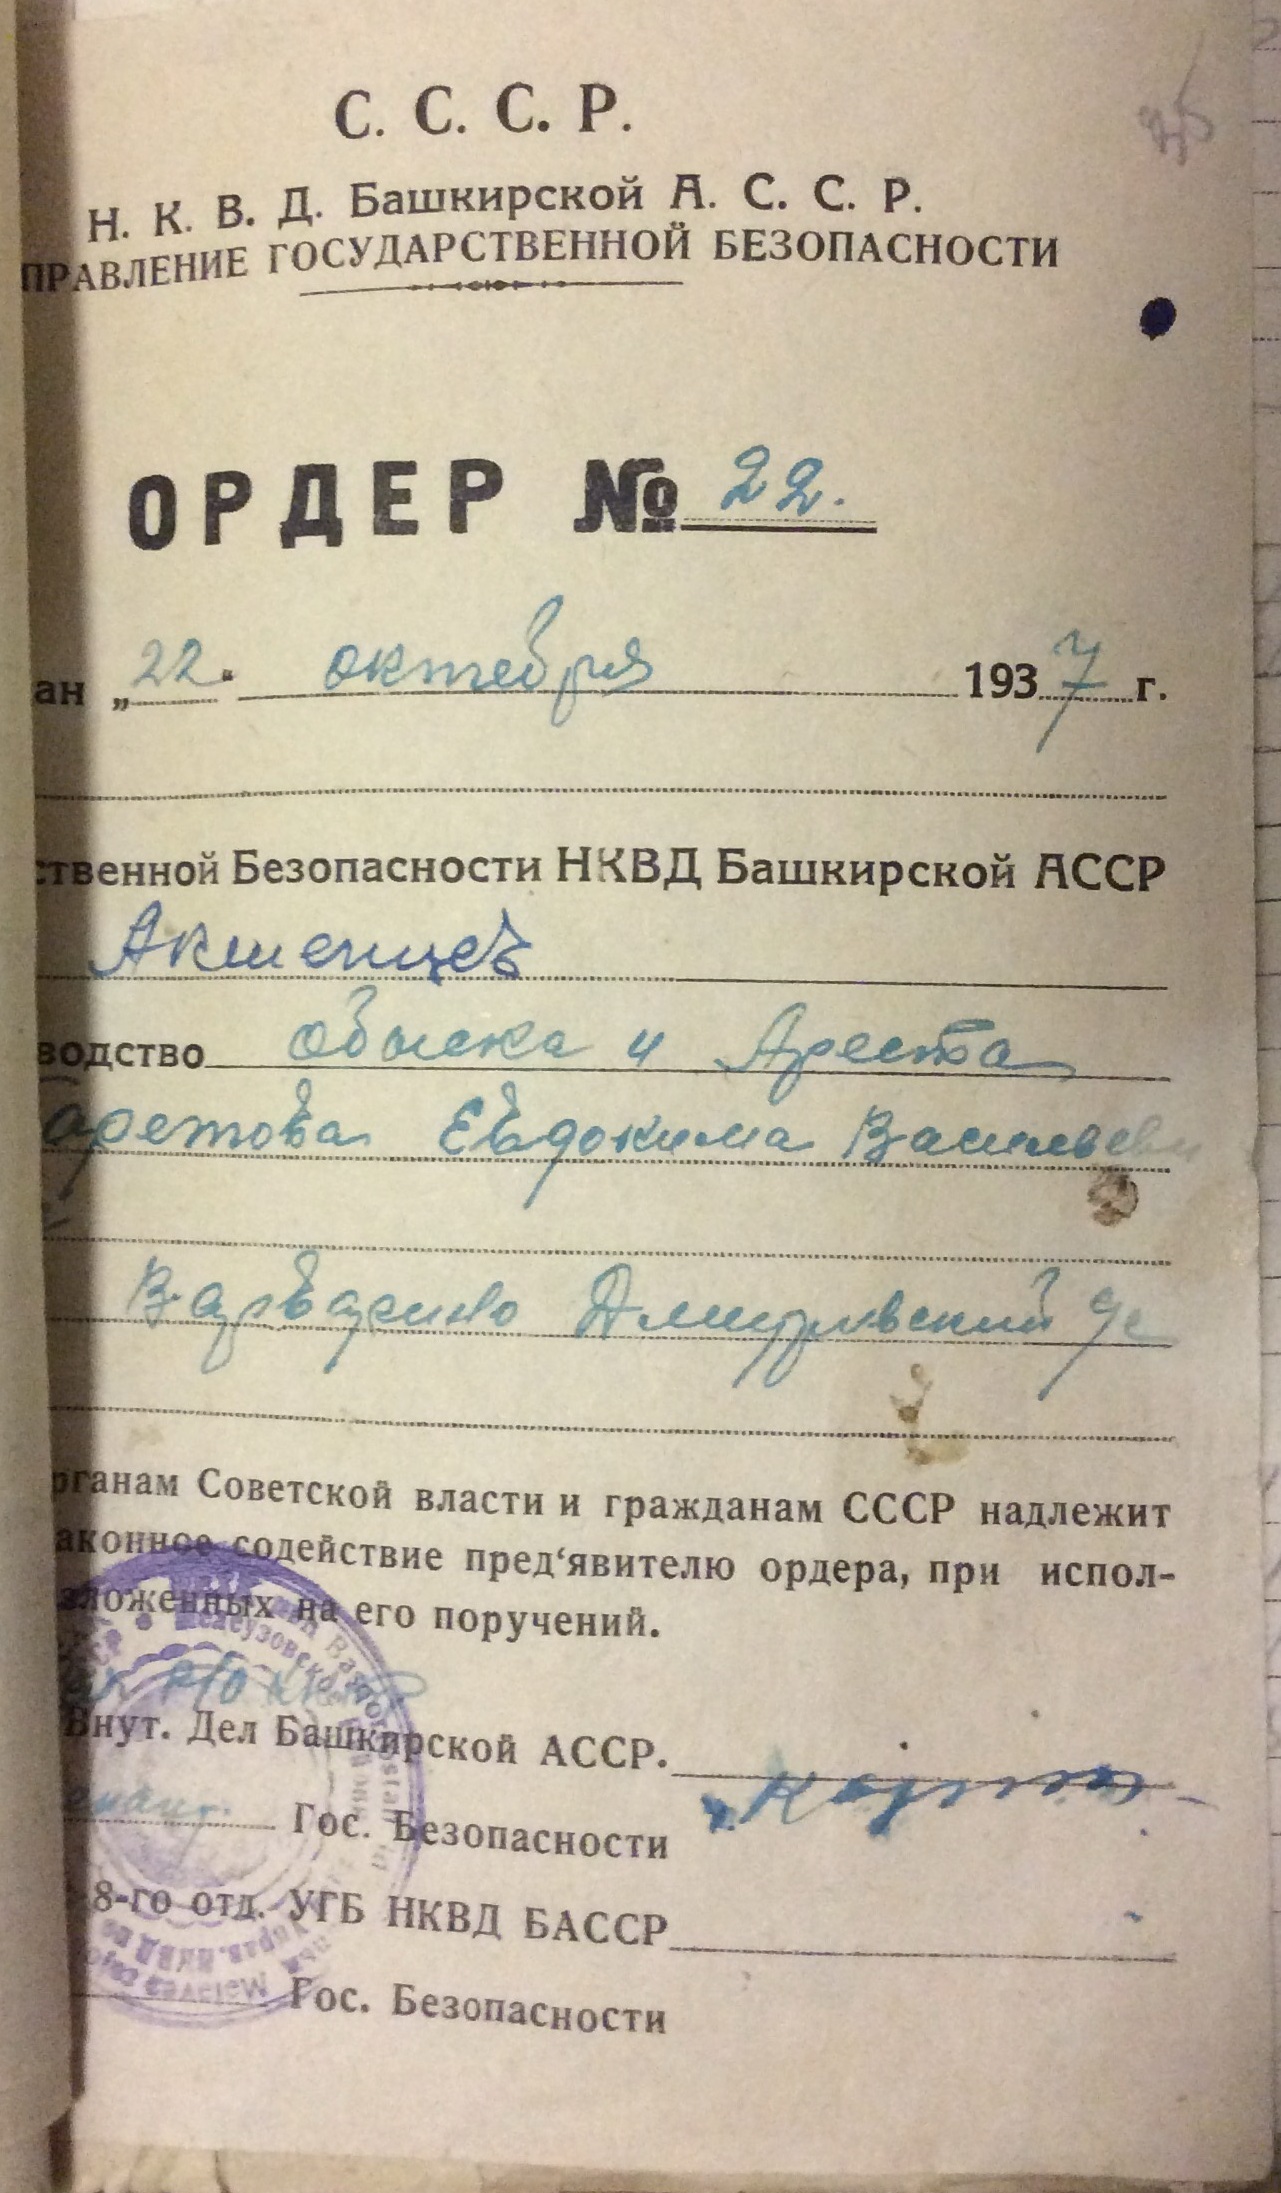 С. С. С. Р.
Н. К. В. Д. Башкирской А. С. С. Р.
ПРАВЛЕНИЕ ГОСУДАРСТВЕННОЙ БЕЗОПАСНОСТИ
ОРДЕР № 22.
ан „22. октября 1937 г.
ственной Безопасности НКВД Башкирской АССР
Акшенцев
водство Обыска и Ареста
аретова Евдокима Васильеви
рганам Советской власти и гражданам СССР надлежит
аконное содействие пред‘явителю ордера, при испол-
зложенных на его поручений.
Р/О НКВД
Внут. Дел Башкирской АССР.
Гос. Безопасности
8-го отд. УГБ НКВД БАССР
Гос. Безопасности